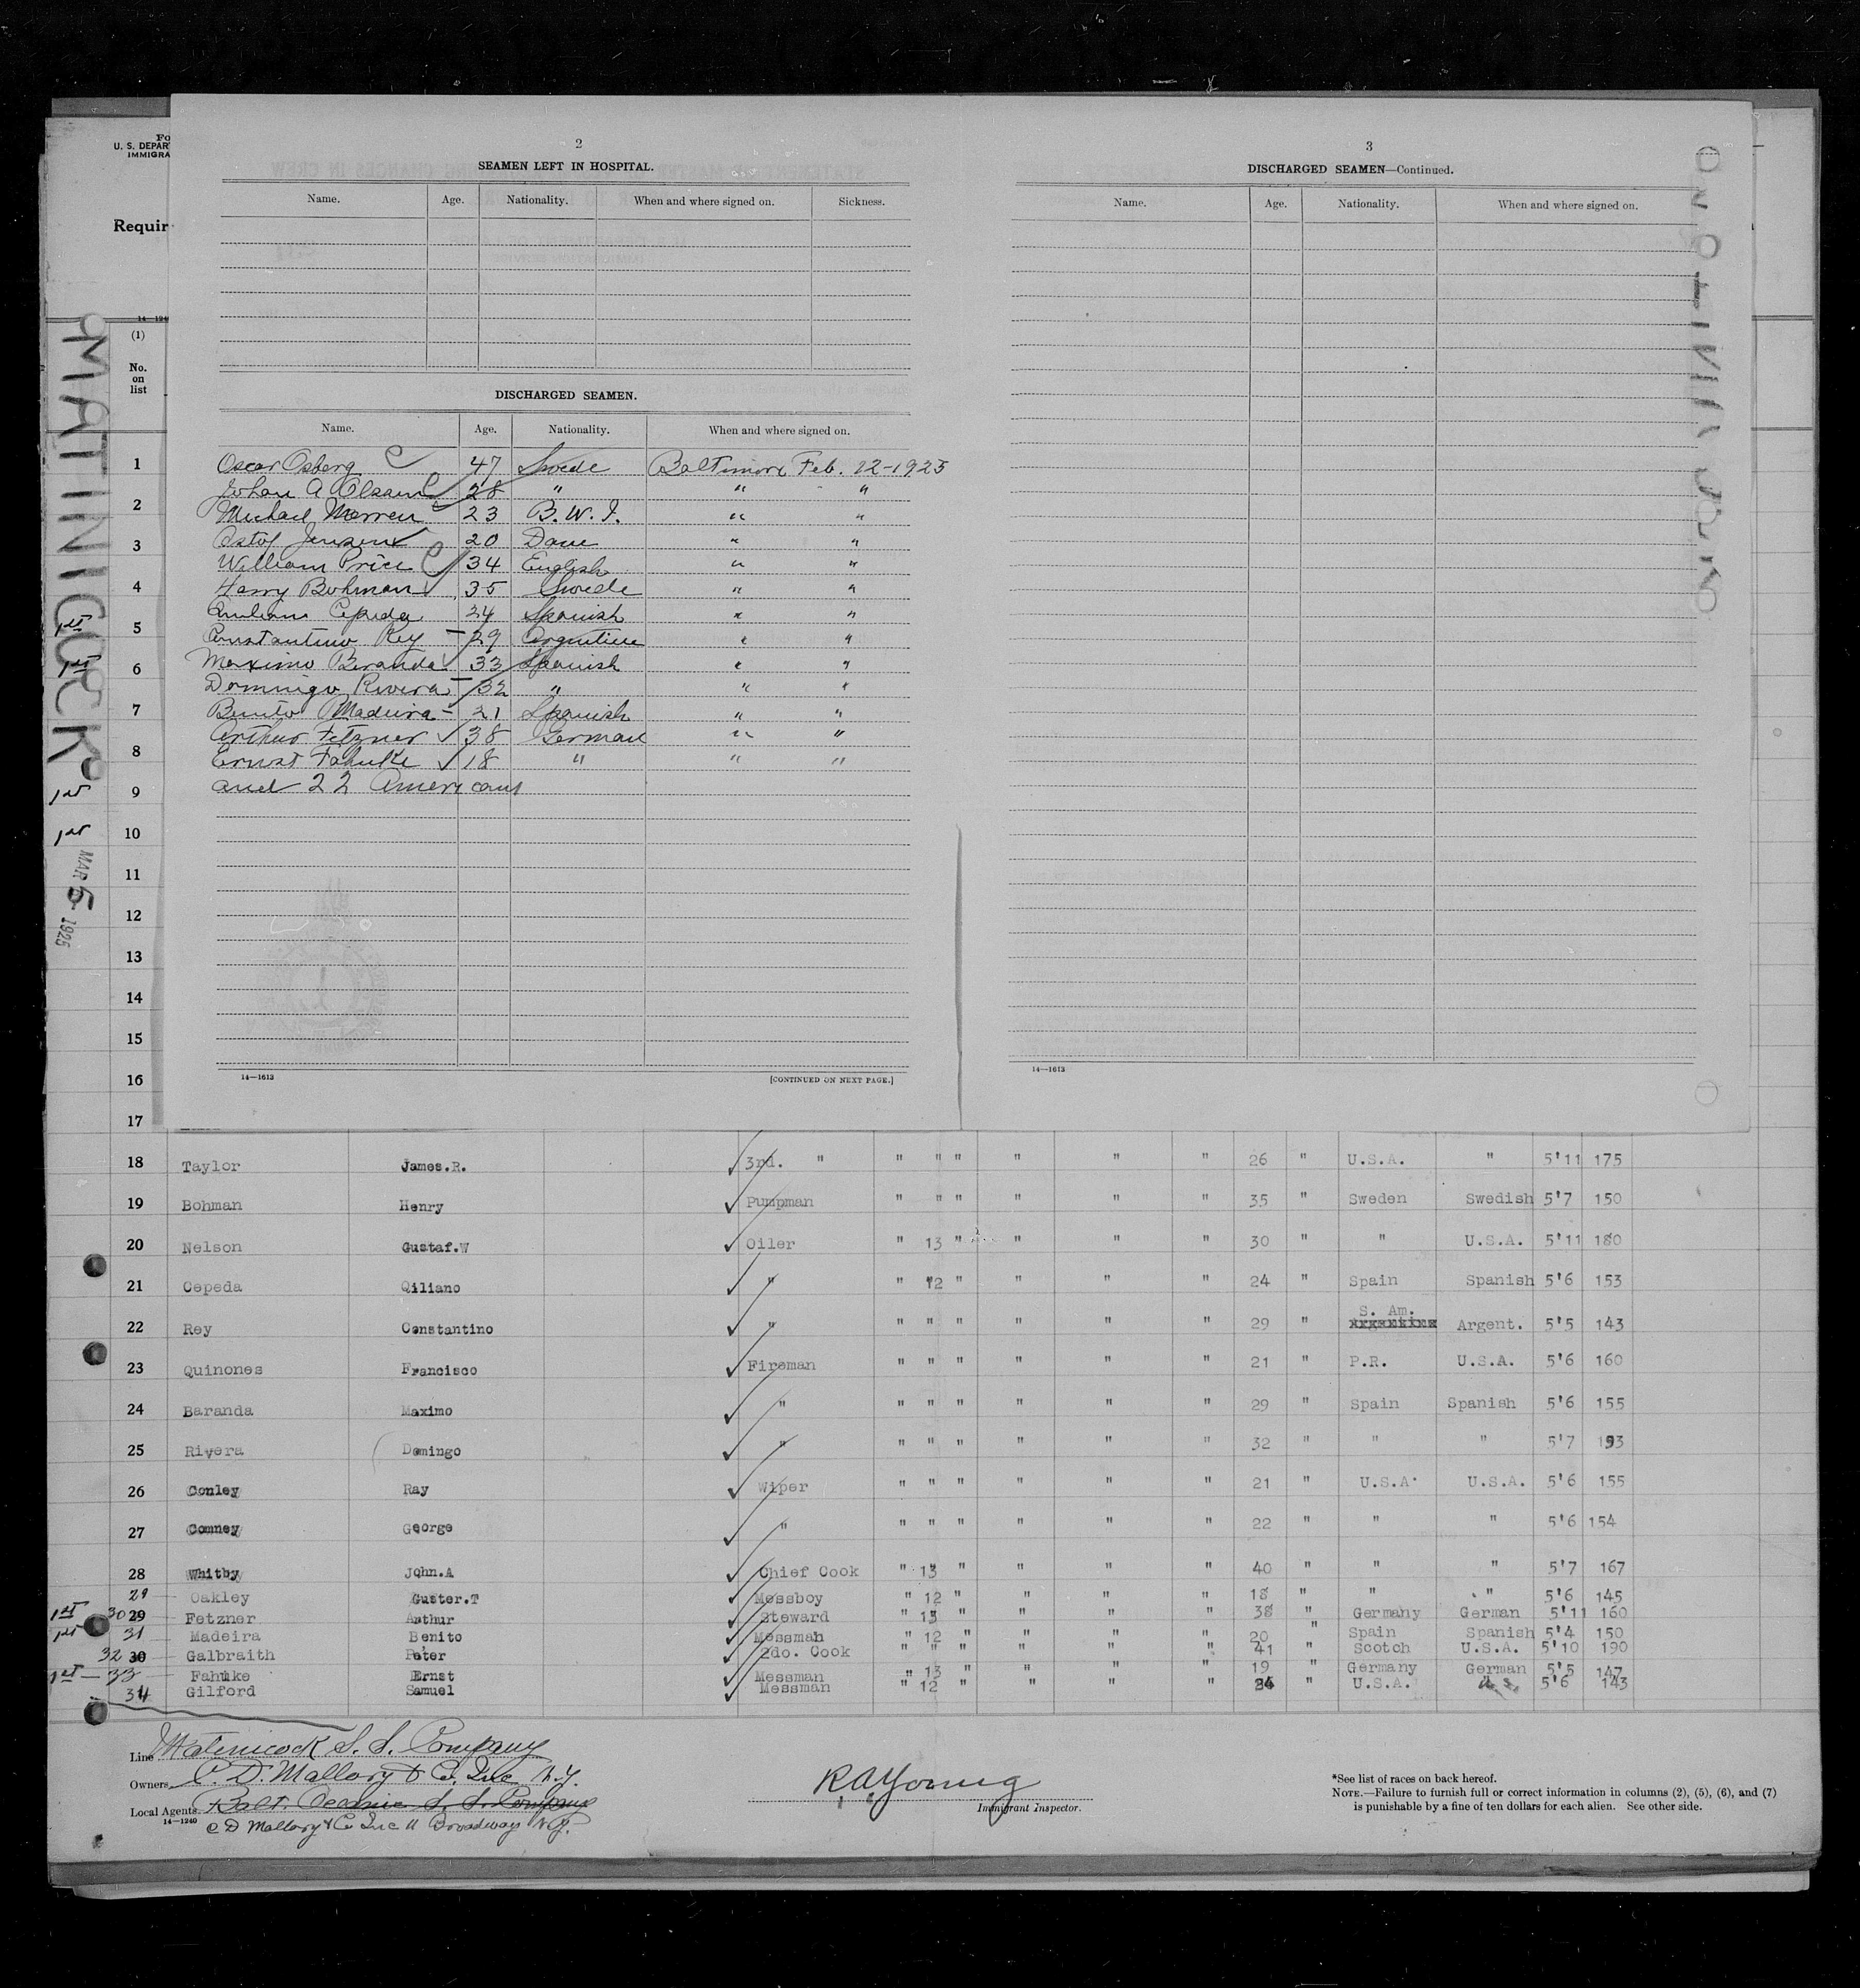 FO
U. S. DEPAR
IMMIGRA
Requir
14—124
(1)
No.
on
list
MATINICOCK
MAR 5 1925
1st
1st
1st
1st
1
2
3
4
5
6
7
8
9
10
11
12
13
14
15
16
17
2
SEAMEN LEFT IN HOSPITAL.
Name. Age. Nationality. When and where signed on. Sickness.
DISCHARGED SEAMEN.
Name. Age. Nationality. When and where signed on.
Oscar Osberg 47 Swede Baltimore Feb. 12-1925
Johan A Olsson 28 " " "
Michael Morren 23 B.W.I. " "
Jensen 20 Dane " "
William Price 34 English " "
Harry Bohman 35 Swede " "
Cepeda 24 Spanish " "
Constantino Rey 29 Argentine " "
Maximo Baranda 33 Spanish " "
Domingo Rivera 32 " " "
Benito Madeira 21 Spanish " "
Arthur Fetzner 38 German " "
Ernst Fahuke 18 " " "
and 22 Americans
14—1613 [CONTINUED ON NEXT PAGE.]
3
DISCHARGED SEAMEN—Continued.
Name. Age. Nationality. When and where signed on.
14—1613
18 Taylor James.R. 3rd. " " " " " " " 26 " U.S.A. " 5'11 175
19 Bohman Henry Pumpman " " " " " " 35 " Sweden Swedish 5'7 150
20 Nelson Gustaf.W Oiler " 13 " " " " 30 " " U.S.A. 5'11 180
21 Cepeda Qiliano " " 12 " " " " 24 " Spain Spanish 5'6 153
22 Rey Constantino " " " " " " " 29 " S. Am. Argent. 5'5 143
23 Quinones Francisco Fireman " " " " " " 21 " P.R. U.S.A. 5'6 160
24 Baranda Maximo " " " " " " " 29 " Spain Spanish 5'6 155
25 Rivera Domingo " " " " " " " 32 " " " 5'7 193
26 Conley Ray Wiper " " " " " " 21 " U.S.A. U.S.A. 5'6 155
27 Comney George " " " " " " " 22 " " " 5'6 154
28 Whitby John.A Chief Cook " 13 " " " " 40 " " " 5'7 167
29 Oakley Guster.T Messboy " 12 " " " " 18 " " " 5'6 145
1st 30 29 Fetzner Arthur Steward " 13 " " " " 38 " Germany German 5'11 160
1st 31 Madeira Benito Messman " 12 " " " " 20 " Spain Spanish 5'4 150
32 30 Galbraith Peter 2do. Cook " " " " " " 41 " Scotch U.S.A. 5'10 190
1st — 33 Fahuke Ernst Messman " 13 " " " " 19 " Germany German 5'5 147
34 Gilford Samuel Messman " 12 " " " " " U.S.A. U.S. 5'6 143
Line Matinicock S. S. Company
Owners C. D. Mallory & Co. Inc N.Y.
Local Agents Balt. Oceanic S. S. Company
14—1240
C D Mallory & Co Inc 11 Broadway N.Y.
R A Young
Immigrant Inspector.
*See list of races on back hereof.
NOTE.—Failure to furnish full or correct information in columns (2), (5), (6), and (7)
is punishable by a fine of ten dollars for each alien. See other side.